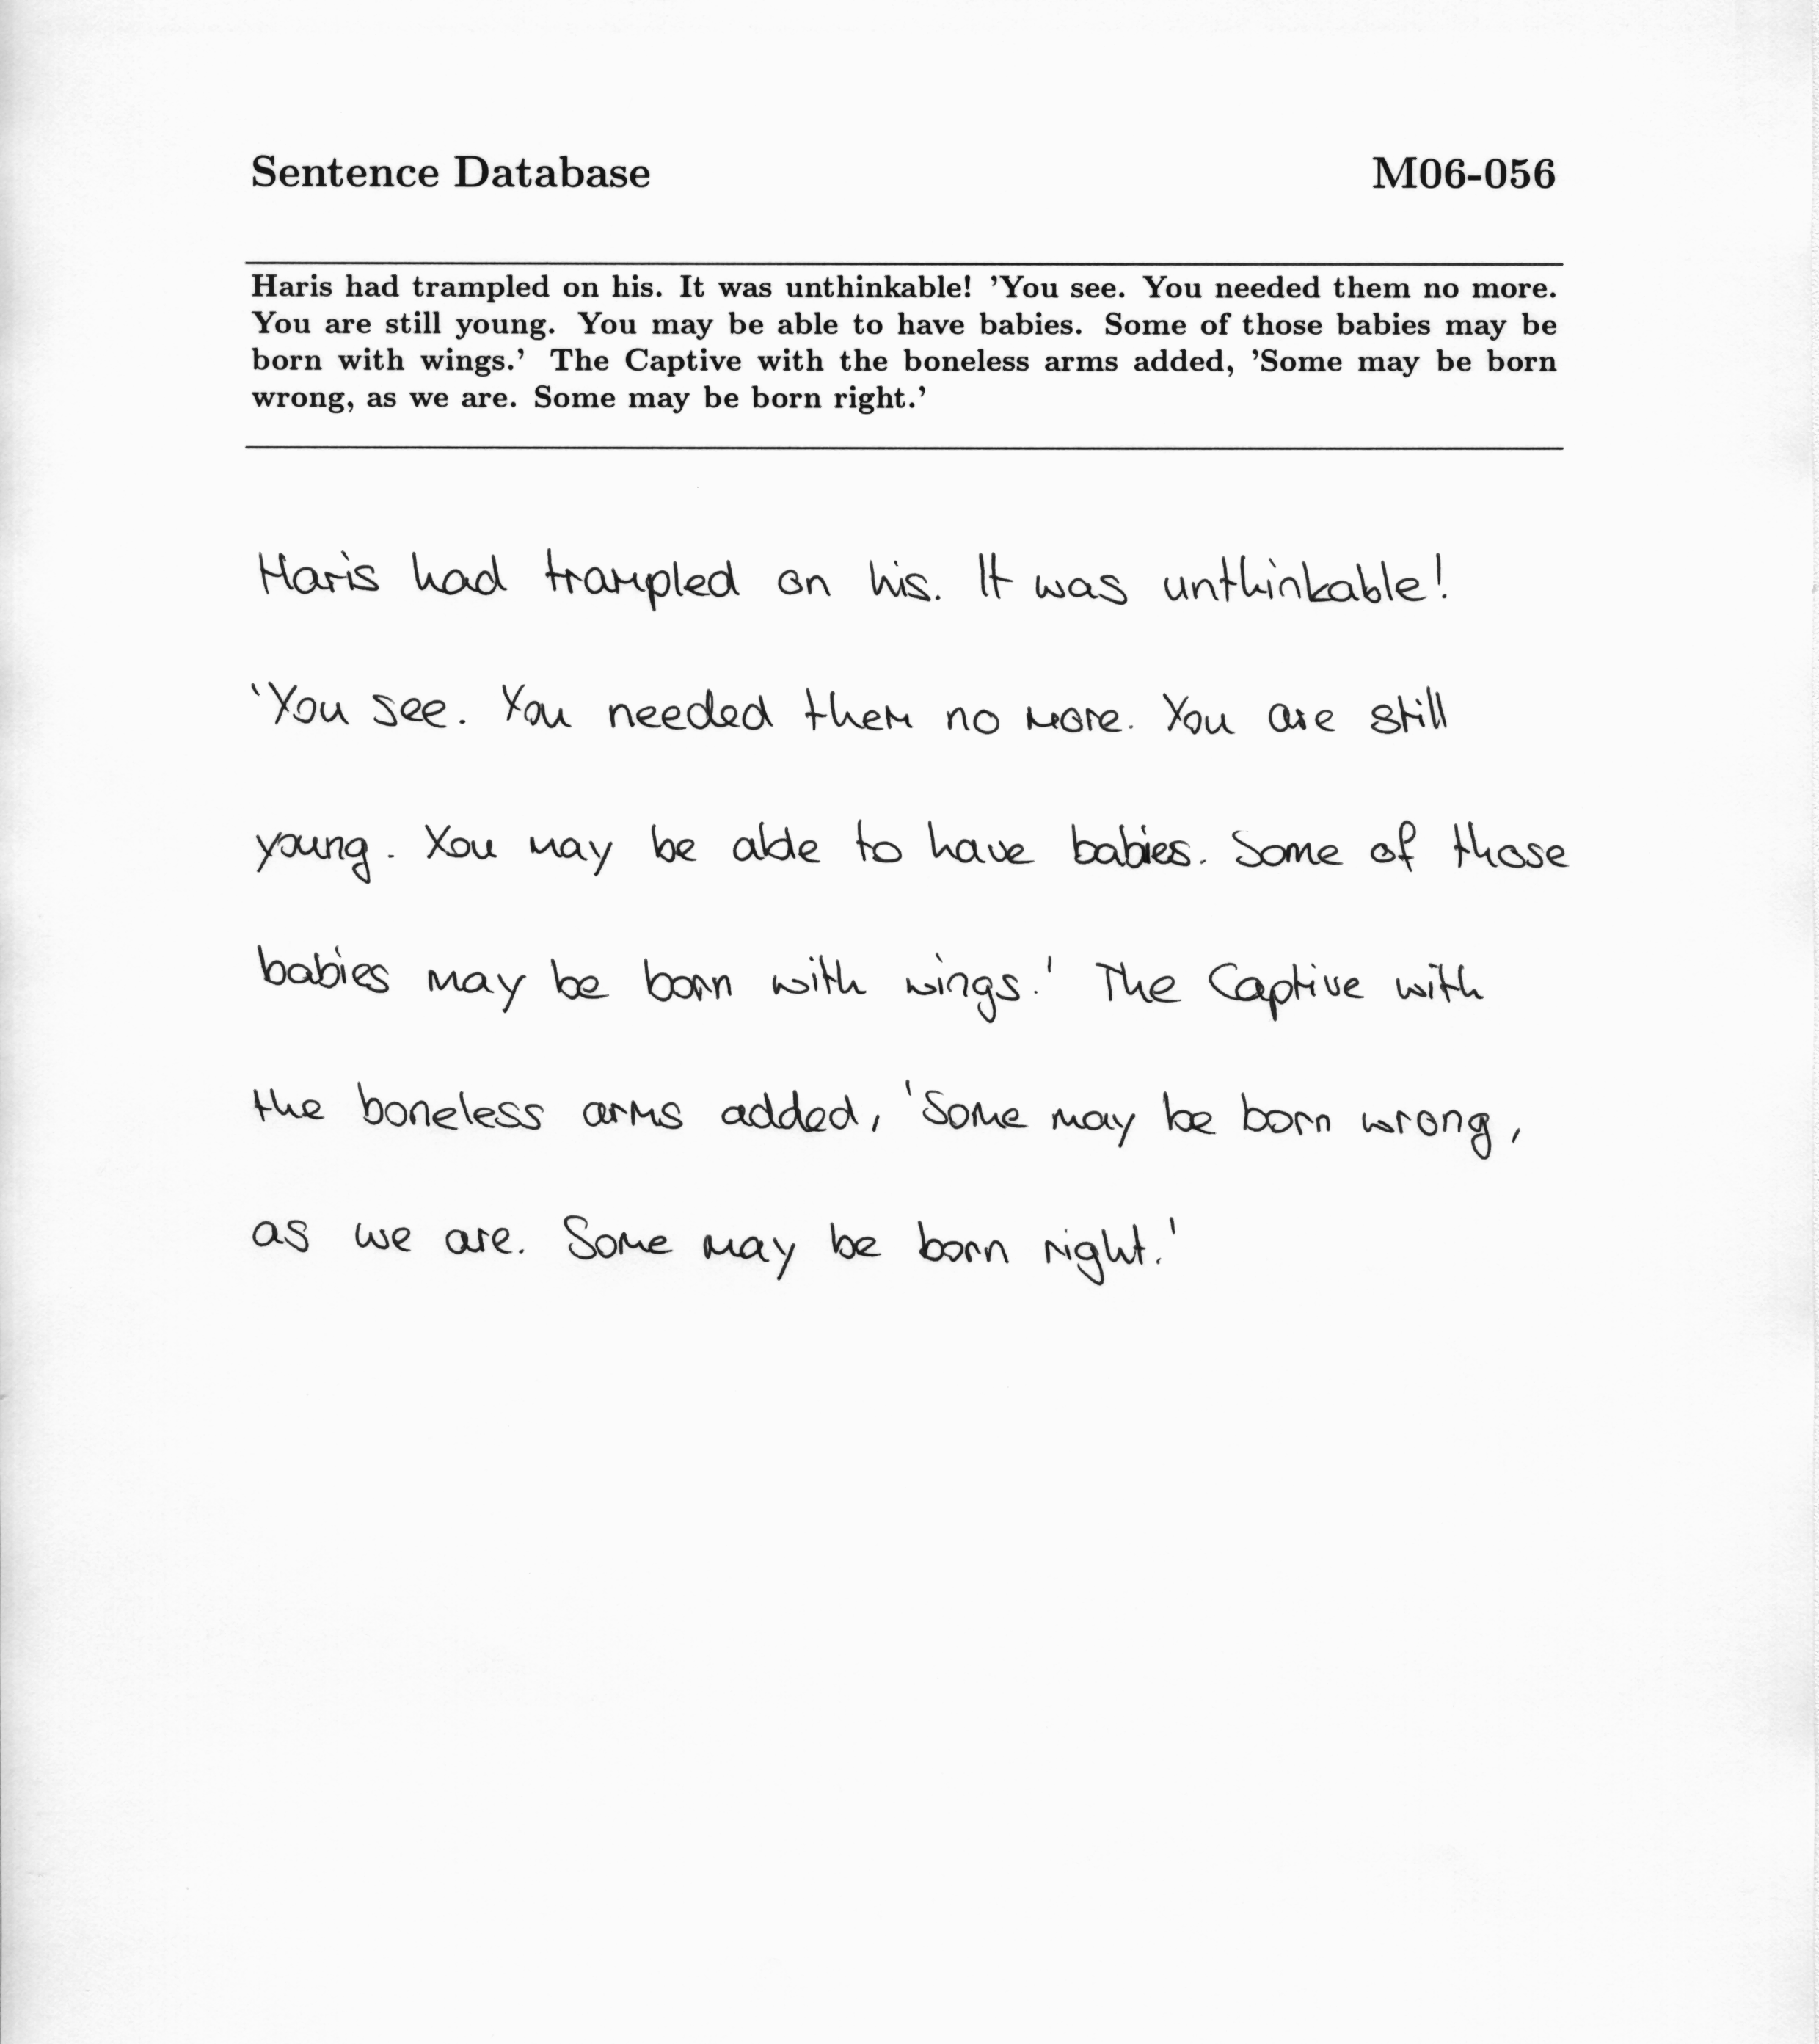 Sentence Database M06-056
Haris had trampled on his. It was unthinkable! ’You see. You needed them no more.
You are still young. You may be able to have babies. Some of those babies may be
born with wings.’ The Captive with the boneless arms added, ’Some may be born
wrong, as we are. Some may be born right.’
Haris had trampled on his. It was unthinkable!
'You see. You needed them no more. You are still
young. You may be able to have babies. Some of those
babies may be born with wings.' The Captive with
the boneless arms added, 'Some may be born wrong,
as we are. Some may be born right.'